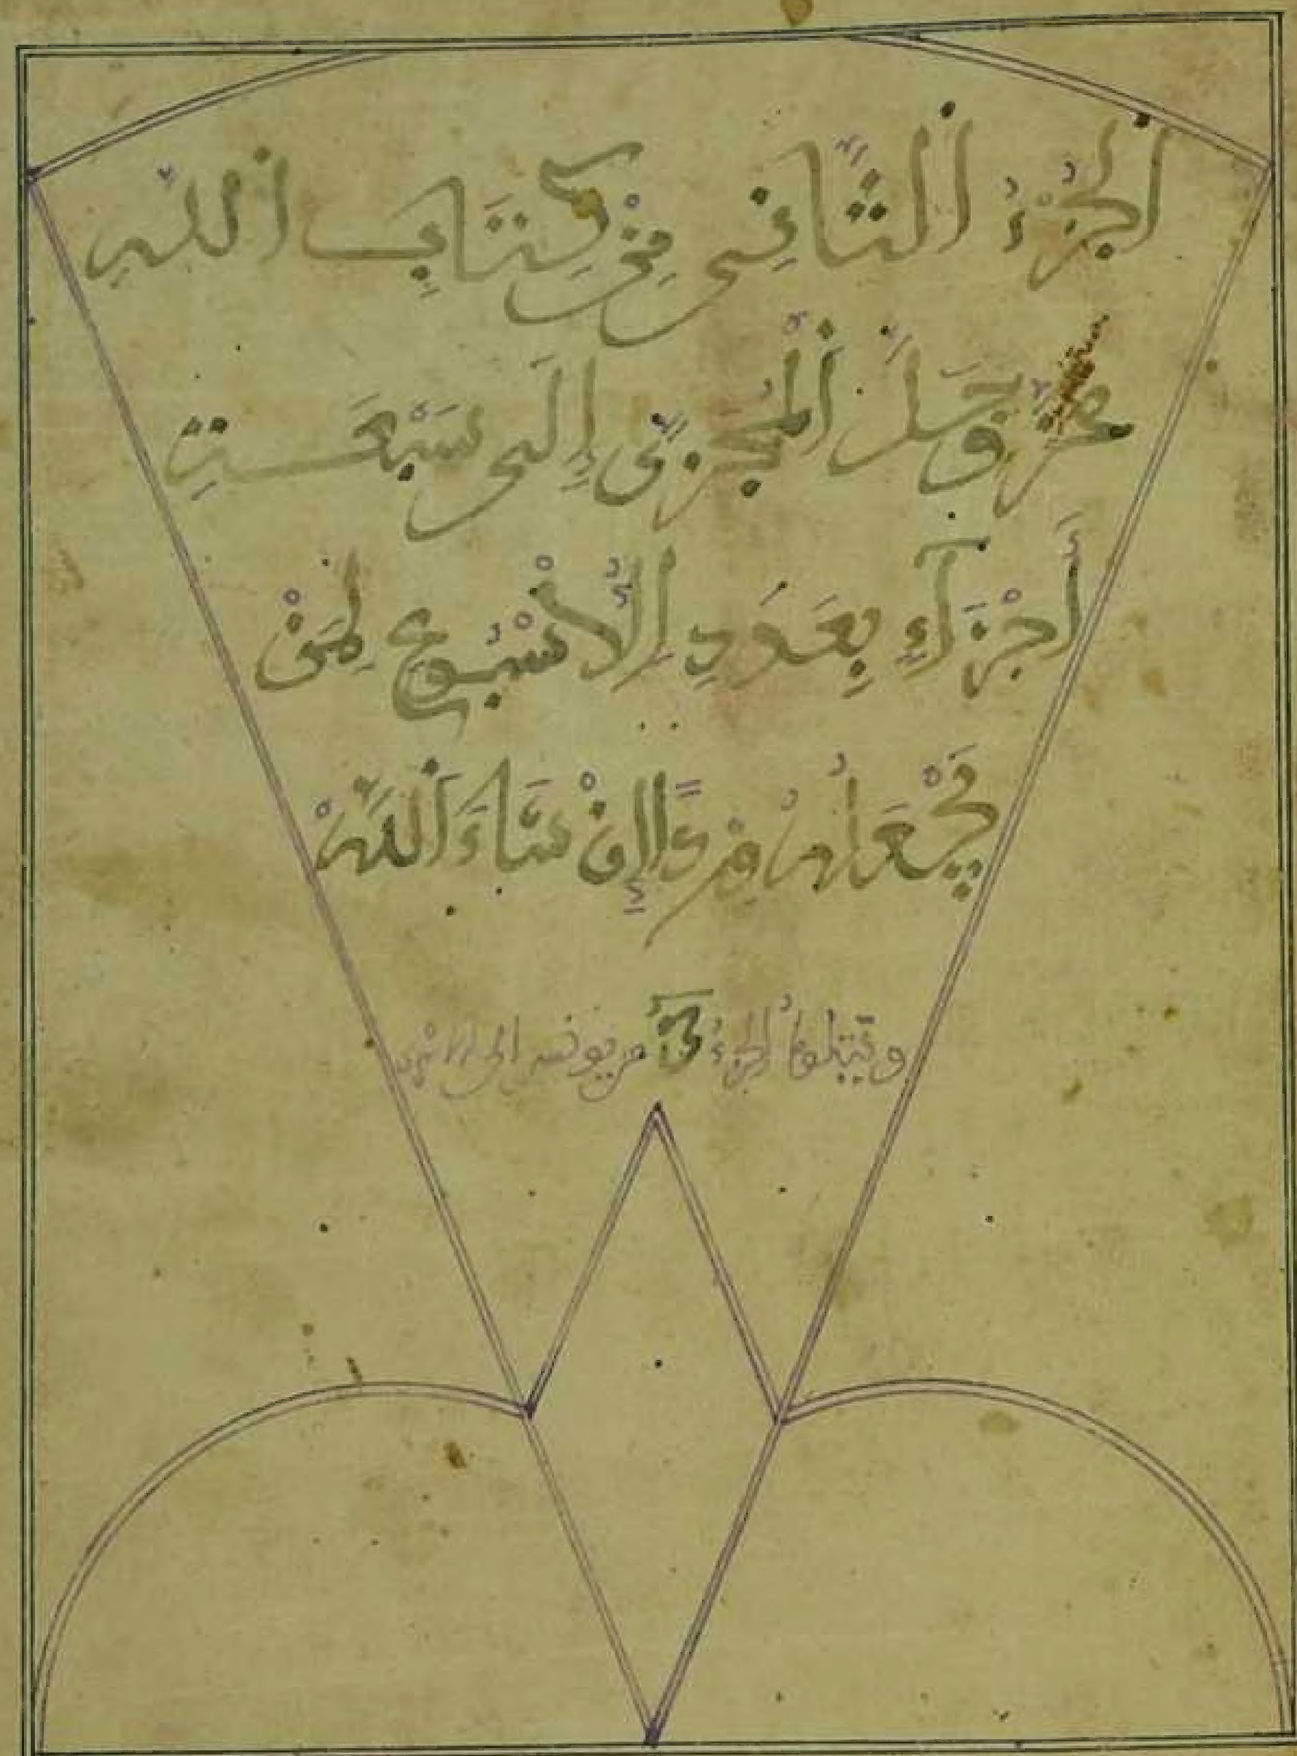 اَلْجُزْءُ اَلثَّانِى مِنْ كِتَابِ اَللَّهِ
عَزَّ وَجَلَّ اَلْمُجَزَّى إِلَى سَبْعَةِ
أَجْزَآءِ بِعَدَدِ اِلْأُسْبُوعِ لِمَنْ
يَجْعَلُهُ وِرْدًا إِنْ شَاءَ اَللَّهُ
الجزءُ من يونس الى